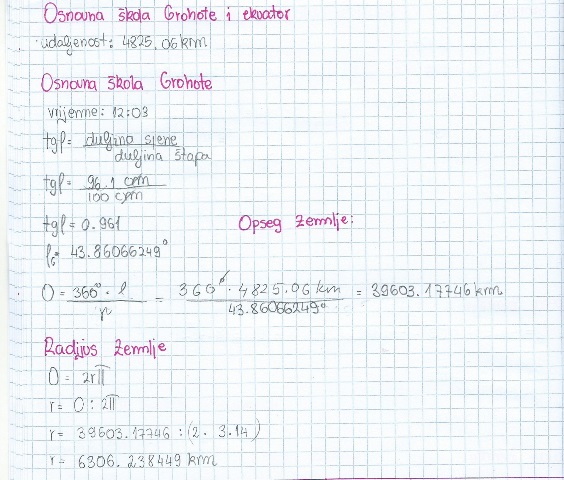 Osnovna škola Grohote i ekvator
udaljenost: 4825.06 km
Osnovna škola Grohote
vrijeme: 12:03
tgφ = duljina sjene / duljina štapa
tgφ = 96.1 cm / 100 cm
tgφ = 0.961
Opseg Zemlje:
43.86066249°
O = 360° · l / = 360° · 4825.06 km / 43.86066249° = 39603.17746 km
Radijus Zemlje
O = 2rπ
r = O : 2π
r = 39603.17746 : (2 · 3.14)
r = 6306.238449 km